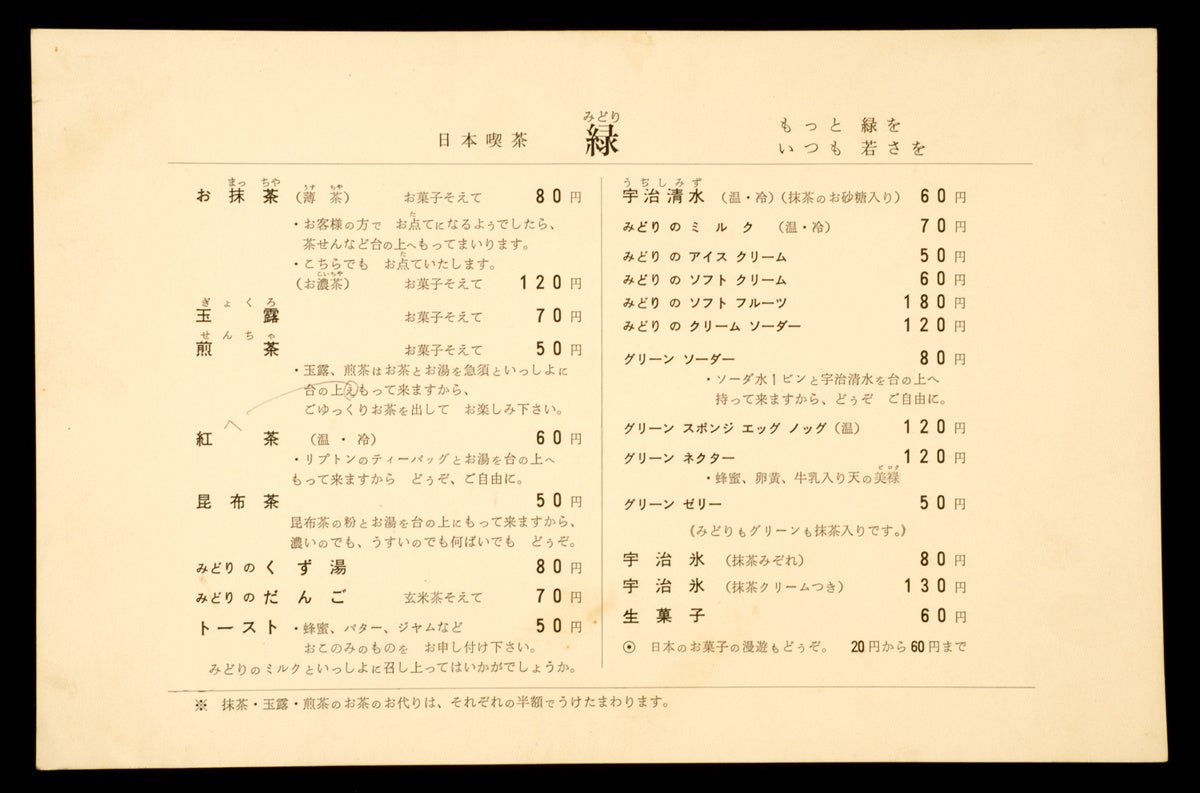 日本喫茶
みどり
緑
もっと 緑を
いつも 若さを
まっ ちや
うす ちや
お抹茶 (薄 茶) お菓子そえて 80円
・お客様の方で お点てになるようでしたら、
た
茶せんなど台の上へもってまいります。
・こちらでも お点ていたします。
た
こいちや
(お濃茶) お菓子そえて 120円
ぎょくろ
玉露 お菓子そえて 70円
せんちゃ
煎茶 お菓子そえて 50円
・玉露、煎茶はお茶とお湯を急須といっしよに
台の上えもって来ますから、
へ
ごゆっくりお茶を出して お楽しみ下さい。
紅茶 (温・冷) 60円
・リプトンのティーバッグとお湯を台の上へ
もって来ますから どうぞ、ご自由に。
昆布茶 50円
昆布茶の粉とお湯を台の上にもって来ますから、
濃いのでも、うすいのでも何ばいでも どうぞ。
みどりのくず湯 80円
みどりのだんご 玄米茶そえて 70円
トースト ・蜂蜜、バター、ジヤムなど 50円
おこのみのものを お申し付け下さい。
みどりのミルクといっしよに召し上ってはいかがでしょうか。
うぢしみず
宇治清水 (温・冷)(抹茶のお砂糖入り) 60円
みどりの ミルク (温・冷) 70円
みどりの アイス クリーム 50円
みどりの ソフト クリーム 60円
みどりの ソフト フルーツ 180円
みどりの クリーム ソーダー 120円
グリーン ソーダー 80円
・ソーダ水1ビンと宇治清水を台の上へ
持って来ますから、どうぞ ご自由に。
グリーン スポンジ エッグ ノッグ(温) 120円
グリーン ネクター 120円
・蜂蜜、卵黄、牛乳入り天の美禄
ビロク
グリーン ゼリー 50円
《みどりもグリーンも抹茶入りです。》
宇治氷 (抹茶みぞれ) 80円
宇治氷 (抹茶クリームつき) 130円
生菓子 60円
⦿ 日本のお菓子の漫遊もどうぞ。 20円から60円まで
※ 抹茶・玉露・煎茶のお茶のお代りは、それぞれの半額でうけたまわります。